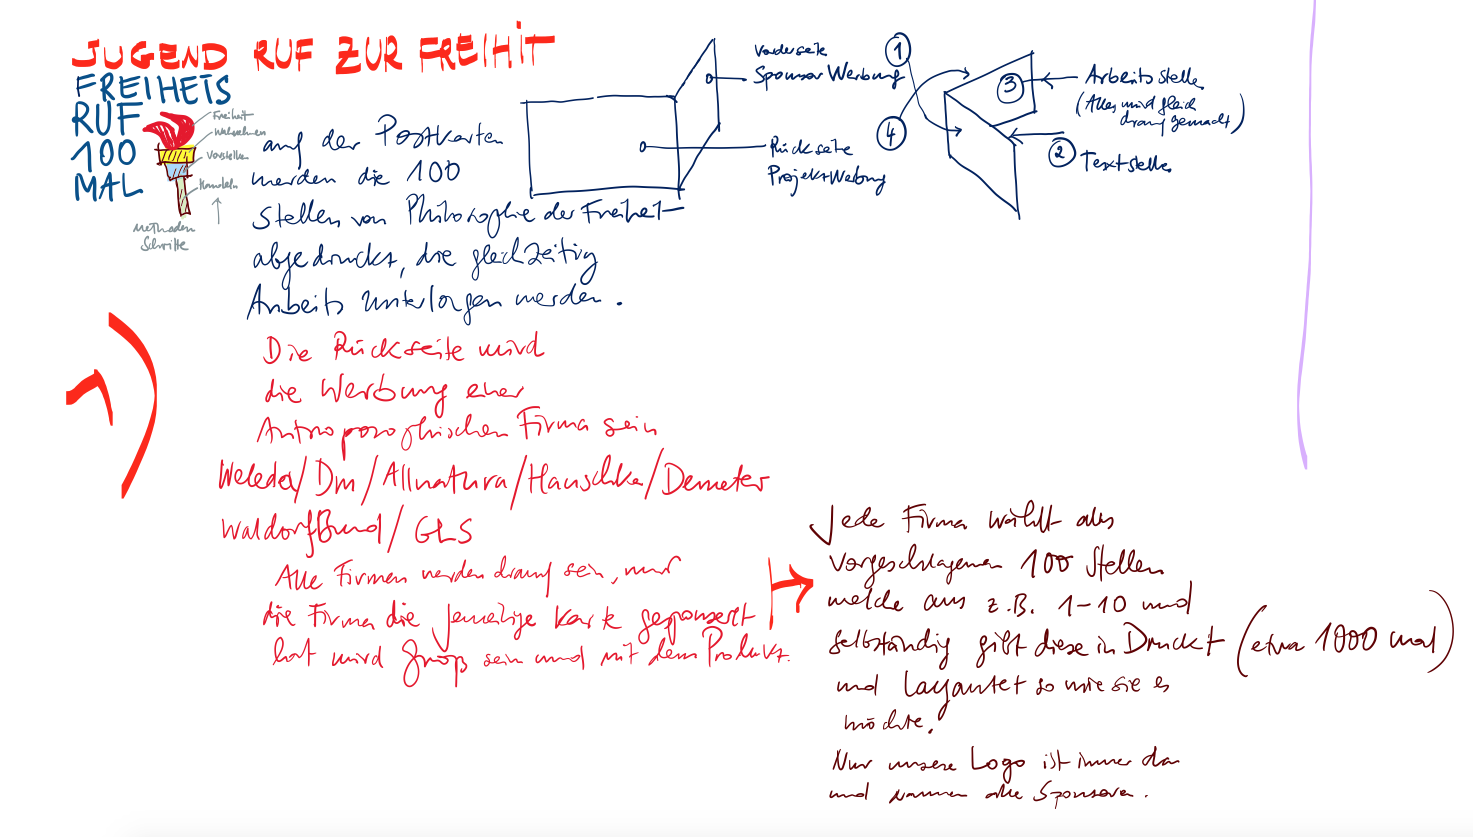 JUGEND RUF ZUR FREIHIT
FREIHEITS
RUF
100
MAL
Freiheit
Wahrnehmen
Vorstellen
Handeln
Methoden
Schritte
auf der Postkarten
werden die 100
Stellen von Philosophie der Freiheit
abgedruckt, die gleichzeitig
Arbeits Unterlagen werden.
Vorderseite
Sponsor Werbung
Rückseite
Projekt Werbung
1
4
3
Arbeitsstelle
(Alles wird gleich
drauf gemacht)
2 Textstelle
1)
Die Rückseite wird
die Werbung einer
Antroposophischen Firma sein
Weleda/Dm/Allnatura/Hauschka/Demeter
WaldorfBund/GLS
Alle Firmen werden drauf sein, nur
die Firma die jeweilige Karte gesponsert
hat wird groß sein und mit dem Produkt.
Jede Firma wählt aus
vorgeschlagenen 100 Stellen
welche aus z.B. 1-10 und
selbständig gibt diese in Druckt (etwa 1000 mal)
und Layautet so wie sie es
möchte.
Nur unsere Logo ist immer da
und nammen alle Sponsoren.